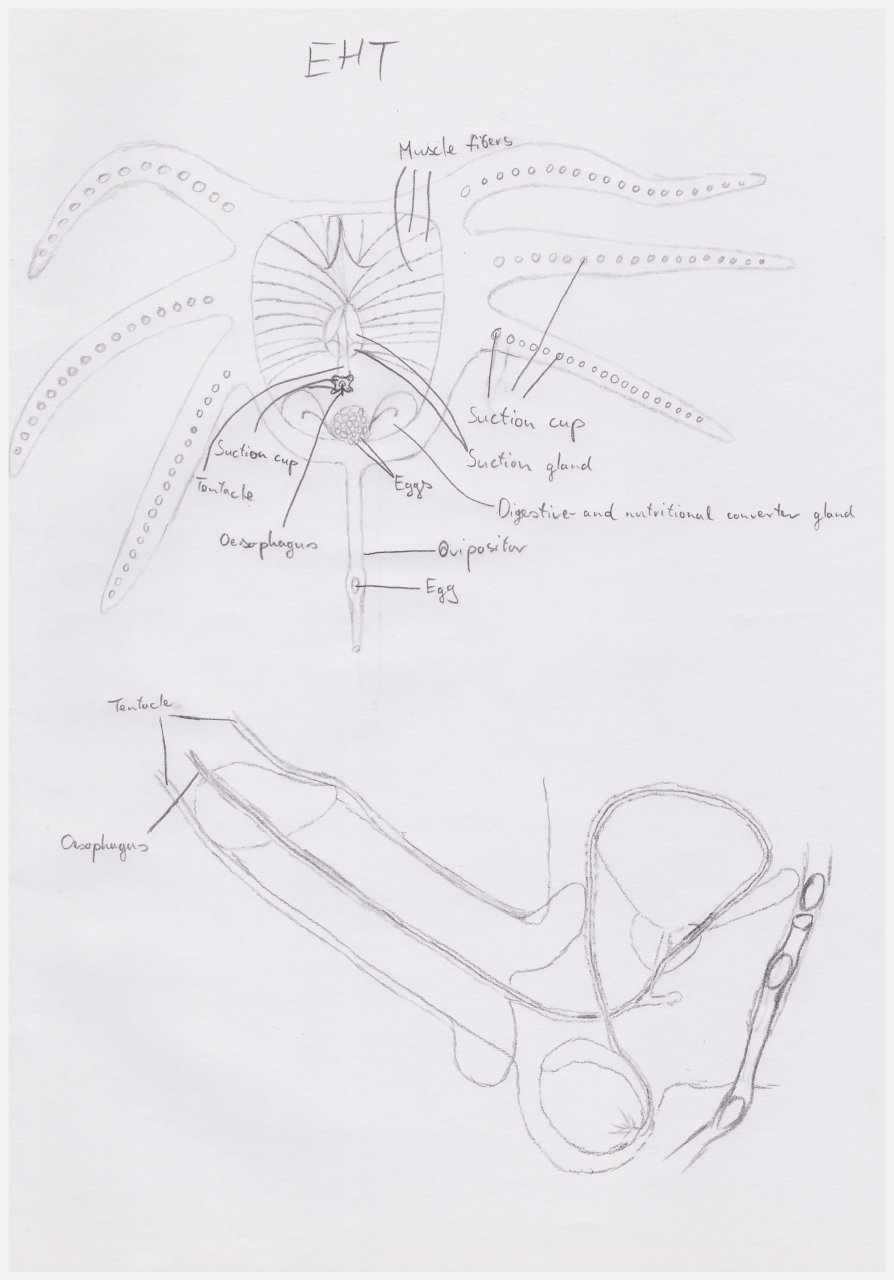 EHT
Muscle fibers
Suction cup
Suction cup
Suction gland
Tentacle
Eggs
Digestive- and nutritional converter gland
Oesophagus
Ovipositor
Egg
Tentacles
Oesophagus